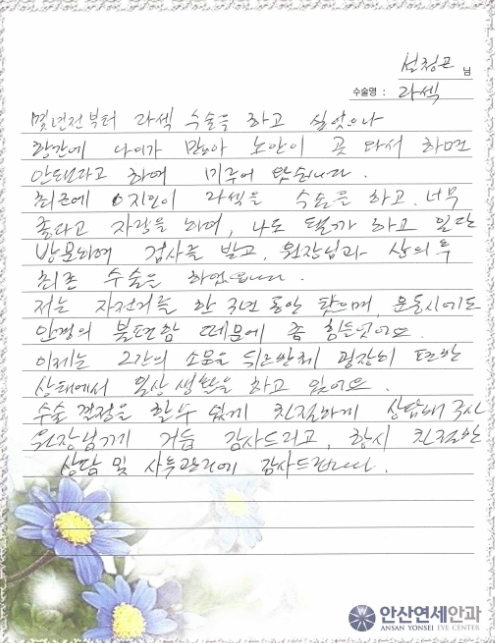 설정표 님
수술명 : 라섹
몇년전부터 라섹 수술을 하고 싶었으나
주변에 나이가 많아 노안이 곳 와서 하면
안된다고 하며 미루어 왔습니다.
최근에 지인이 라섹을 수술을 하고, 너무
좋다고 자랑을 하며, 나도 될까 하고 일단
방문하여 검사를 받고, 원장님과 상의 후
최종 수술을 하였습니다.
저는 자전거를 한 국년 동안 탔으며, 운동시에도
안경의 불편함 때문에 좀 힘들었어요.
이제는 안경의 소품을 굉장히 편한
상태에서 일상 생활을 하고 있어요.
수술 결정을 할수 있게 친절하게 상담해 주신
원장님께 거듭 감사드리고, 항시 친절한
상담 및 사후관리에 감사드립니다.
안산연세안과
ANSAN YONSEI EYE CENTER